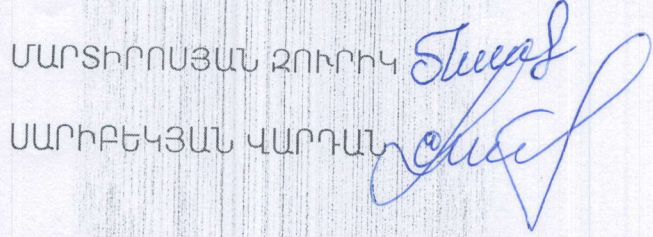 ՄԱՐՏԻՐՈՍՅԱՆ ԶՈՒՐԻԿ
ՍԱՐԻԲԵԿՅԱՆ ՎԱՐԴԱՆ